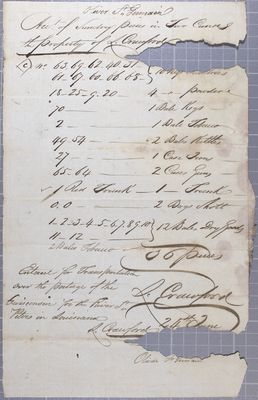 River St. Germain
Acct. of Sundry Pieces in Two Canoes
the property of L Crawford
(C) No. 63, 69, 62, 40, 31
61. 67. 60. 66. 68
18. 25. 9. 20 — 4
70 — 1 Bale Kegs
2 — 1 Bale Tobacco
49. 54 — 2 Bales Kettles
27 — 1 Case Irons
65. 64 — 2 Cases Guns
1 Red Trunk — 1 — Trunk
0, 0 — 2 Bags Shott
1. 2. 3. 4. 5. 6. 7. 8. 9. 10
11. 12 — 12 Bales Dry Goods
2 Bales Tobacco
36 pieces
Entered for Transportation
over the portage of the
Ouisconsin for the River St.
Peters in Louisiana
L Crawford
L Crawford 24th June